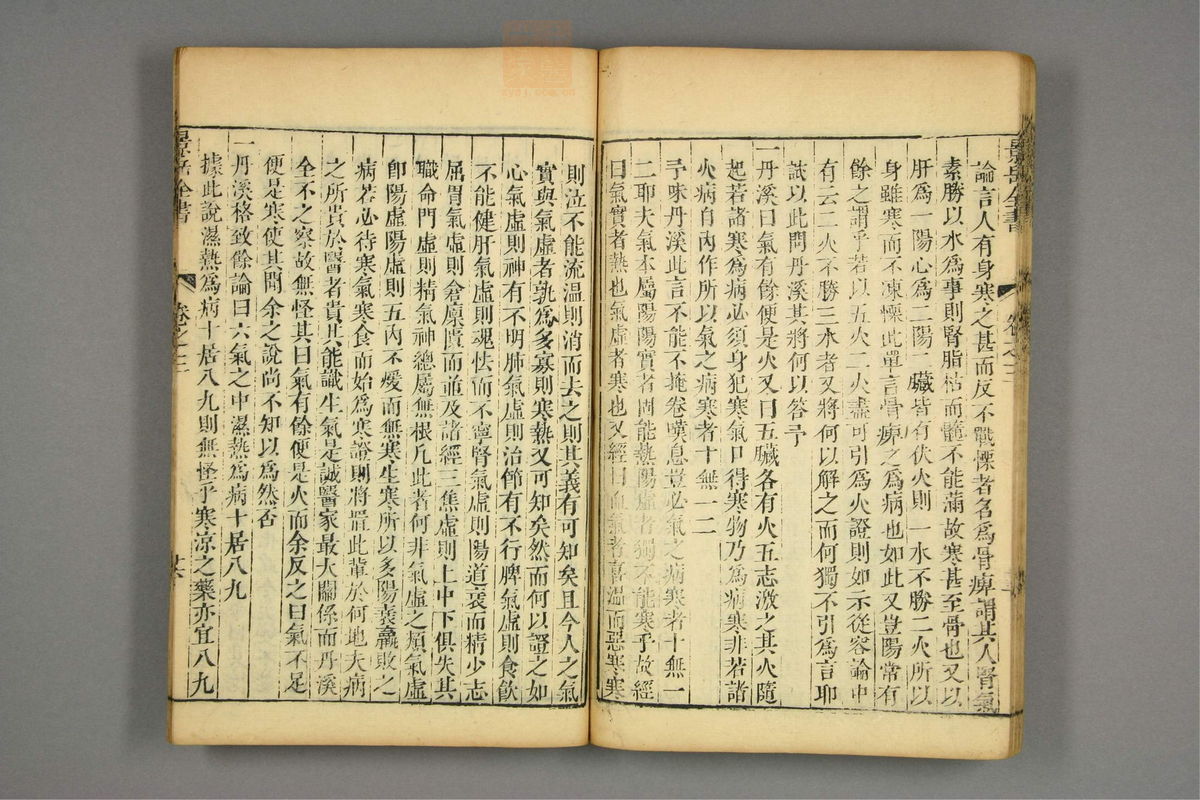 論言人有身寒之甚而反不戰慄者名爲骨痺謂其人腎氣
素勝以水爲事則腎脂枯而髓不能滿故寒甚至骨也又以
肝爲一陽心爲二陽二臟皆有伏火則一水不勝二火所以
身雖寒而不凍慄此單言骨痺之爲病也如此又豈陽常有
餘之謂乎若以五火二火盡可引爲火證則如示從容論中
有云二火不勝三水者又將何以解之而何獨不引爲言耶
試以此問丹溪其將何以答予
一丹溪曰氣有餘便是火又曰五臟各有火五志激之其火隨
起若諸寒爲病必須身犯寒氣口得寒物乃爲病寒非若諸
火病自內作所以氣之病寒者十無一二
予味丹溪此言不能不掩卷嘆息豈必氣之病寒者十無一
二耶夫氣本屬陽陽實者固能熱陽虛者獨不能寒乎故經
曰氣實者熱也氣虛者寒也又經曰血氣者喜溫而惡寒寒
則泣不能流溫則消而去之則其義有可知矣且今人之氣
實與氣虛者孰爲多寡則寒熱又可知矣然而何以證之如
心氣虛則神有不明肺氣虛則治節有不行脾氣虛則食飲
不能健肝氣虛則魂怯而不寧腎氣虛則陽道衰而精少志
屈胃氣虛則倉廩匱而並及諸經三焦虛則上中下俱失其
職命門虛則精氣神總屬無根凡此者何非氣虛之類氣虛
卽陽虛陽虛則五內不煖而無寒生寒所以多陽衰羸敗之
病若必待寒氣寒食而始爲寒證則將置此輩於何地夫病
之所貴於醫者貴其能識生氣是誠醫家最大關係而丹溪
全不之察故無怪其曰氣有餘便是火而余反之曰氣不足
便是寒使其聞余之說尚不知以爲然否
一丹溪格致餘論曰六氣之中濕熱爲病十居八九
據此說濕熱爲病十居八九則無怪乎寒涼之藥亦宜八九
景岳全書
卷之三
廿六